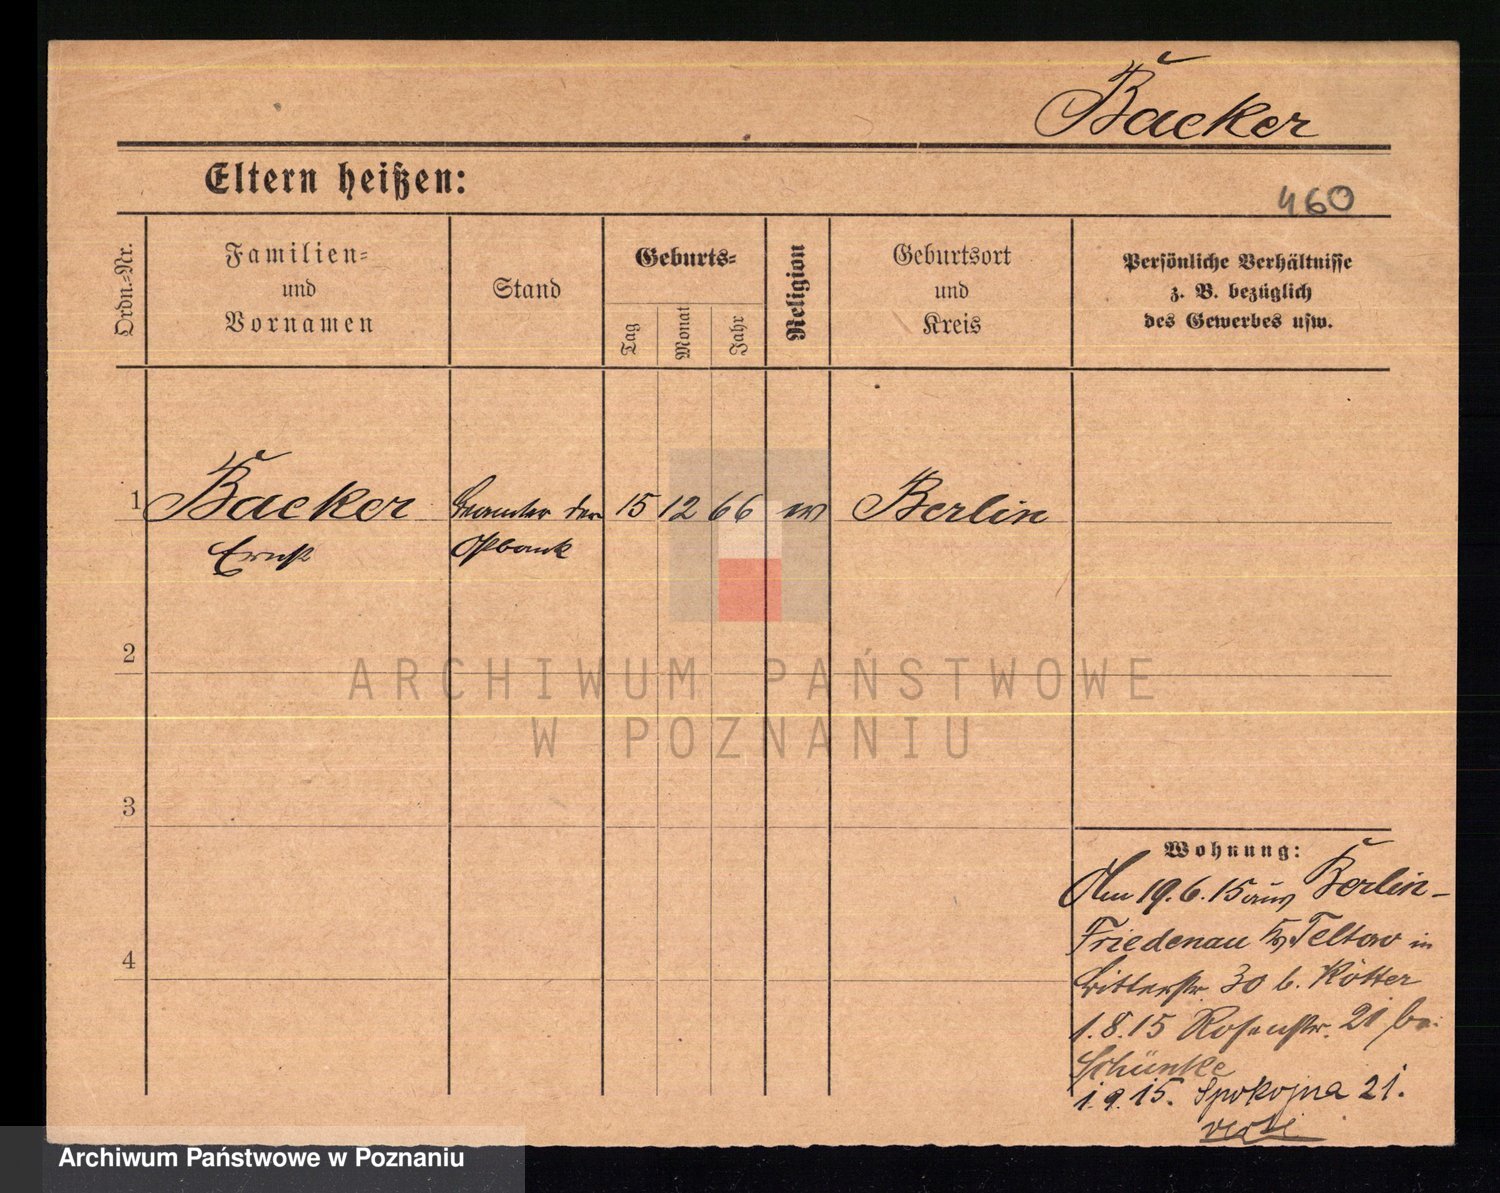 Backer
Eltern heißen:
460
Ordn.=Nr.
Familien=
und
Vornamen
Stand
Geburts=
Tag
Monat
Jahr
Religion
Geburtsort
und
Kreis
Persönliche Verhältnisse
z. B. bezüglich
des Gewerbes usw.
1 Backer Beamter der 15 12 66 ev Berlin
Ernst Ostbank
2
3
4
Wohnung:
Am 19.6.15 aus Berlin-
Friedenau Teltow in
Ritterstr 30 b. Kötter
1.8.15 Rosenstr. 21 bei
1.9.15. Spokojna 21.
ARCHIWUM PAŃSTWOWE
W POZNANIU
Archiwum Państwowe w Poznaniu